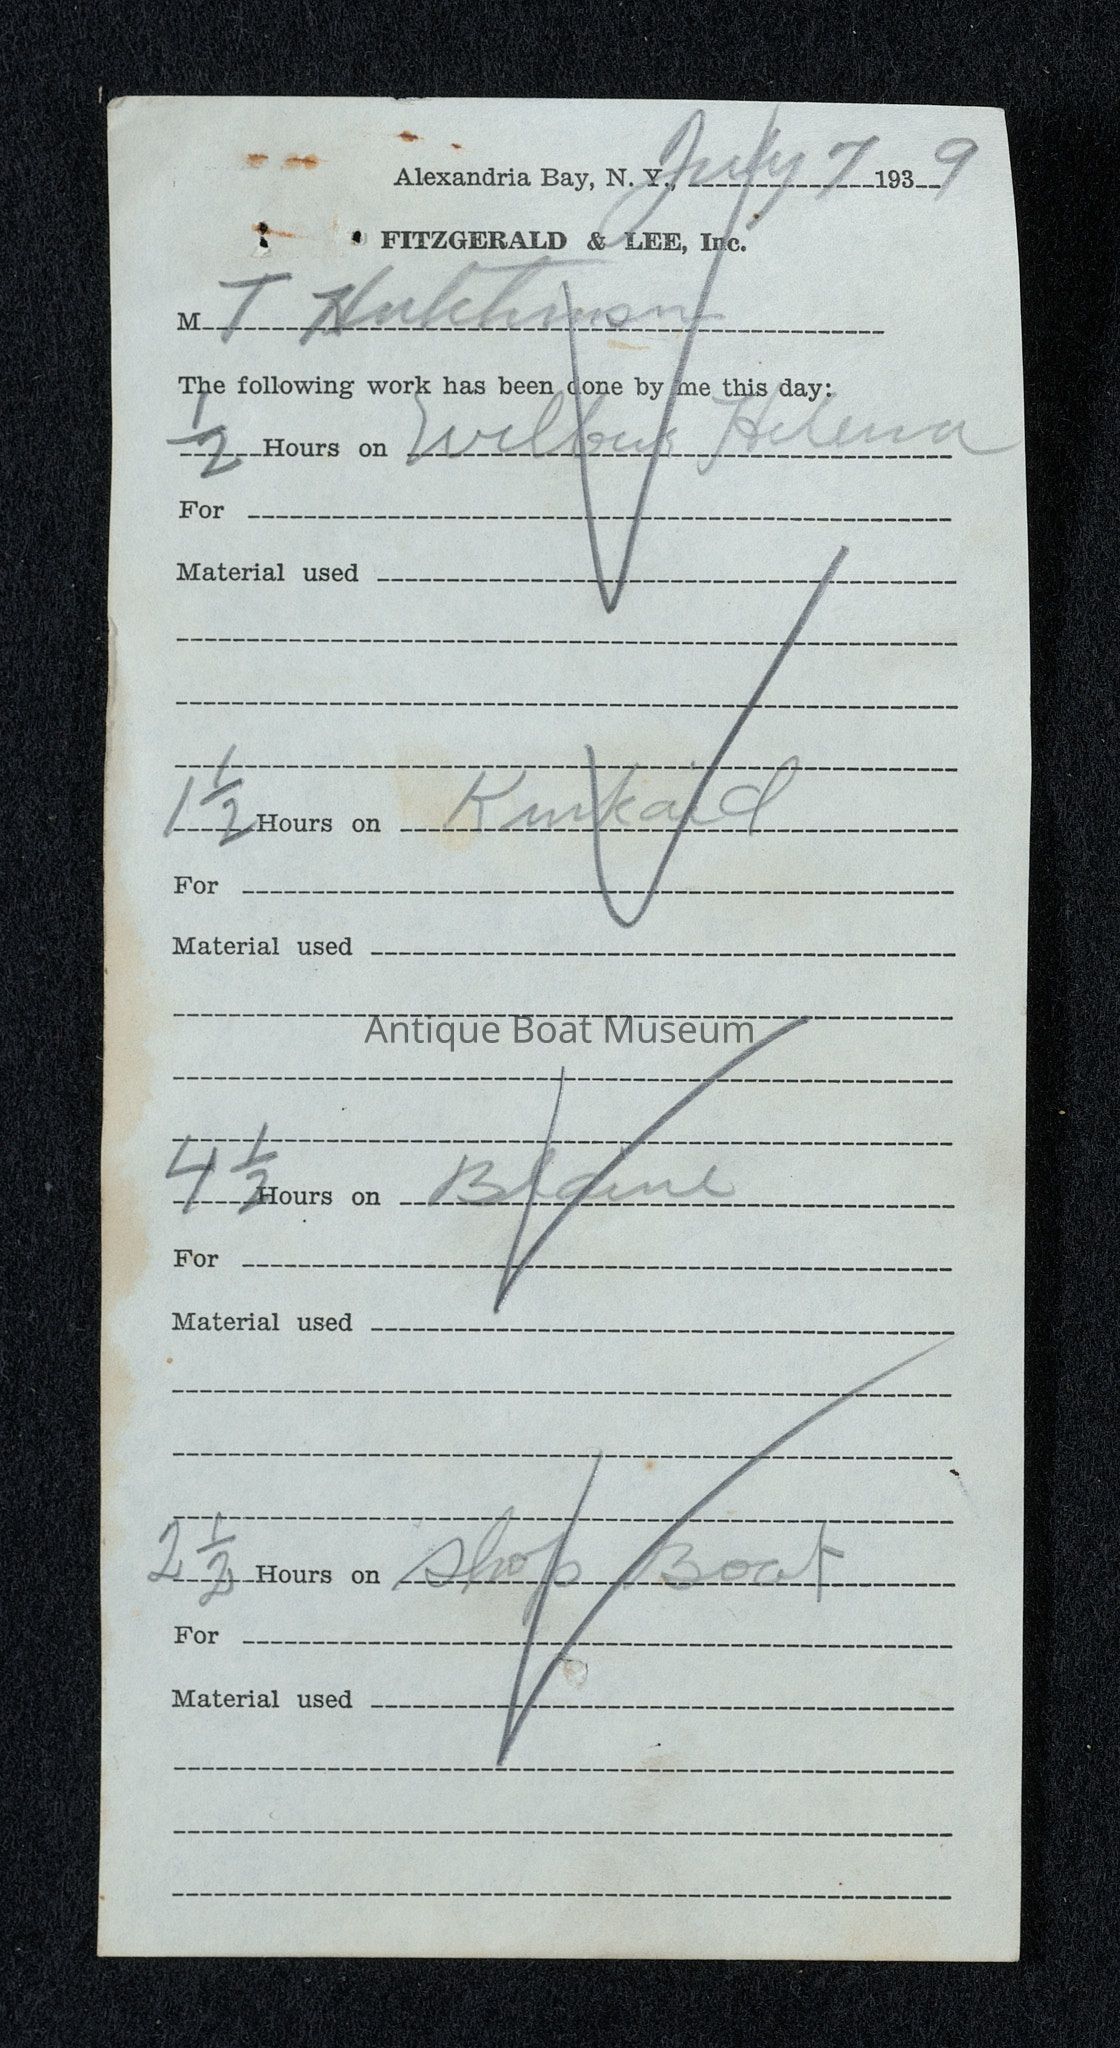 Alexandria Bay, N. Y., July 7 1939
FITZGERALD & LEE, Inc.
M T Hutchinson
The following work has been done by me this day:
1/2 Hours on Wilbur Helena
For
Material used
1 1/2 Hours on Kinkaid
For
Material used
Antique Boat Museum
4 1/2 Hours on Blaine
For
Material used
2 1/2 Hours on Shop Boat
For
Material used